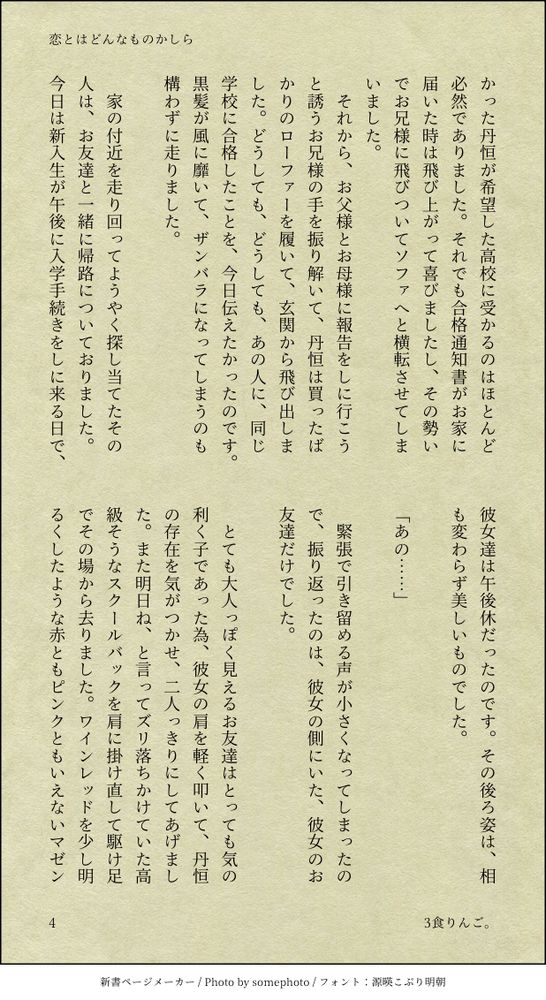 恋とはどんなものかしら
かった丹恒が希望した高校に受かるのはほとんど
必然でありました。それでも合格通知書がお家に
届いた時は飛び上がって喜びましたし、その勢い
でお兄様に飛びついてソファへと横転させてしま
いました。
それから、お父様とお母様に報告をしに行こう
と誘うお兄様の手を振り解いて、丹恒は買ったば
かりのローファーを履いて、玄関から飛び出しま
した。どうしても、どうしても、あの人に、同じ
学校に合格したことを、今日伝えたかったのです。
黒髪が風に靡いて、ザンバラになってしまうのも
構わずに走りました。
家の付近を走り回ってようやく探し当てたその
人は、お友達と一緒に帰路についておりました。
今日は新入生が午後に入学手続きをしに来る日で、
彼女達は午後休だったのです。その後ろ姿は、相
も変わらず美しいものでした。
「あの……」
緊張で引き留める声が小さくなってしまったの
で、振り返ったのは、彼女の側にいた、彼女のお
友達だけでした。
とても大人っぽく見えるお友達はとっても気の
利く子であった為、彼女の肩を軽く叩いて、丹恒
の存在を気がつかせ、二人っきりにしてあげまし
た。また明日ね、と言ってズリ落ちかけていた高
級そうなスクールバックを肩に掛け直して駆け足
でその場から去りました。ワインレッドを少し明
るくしたような赤ともピンクともいえないマゼン
4
3食りんご。
新書ページメーカー / Photo by somephoto / フォント：源暎こぶり明朝